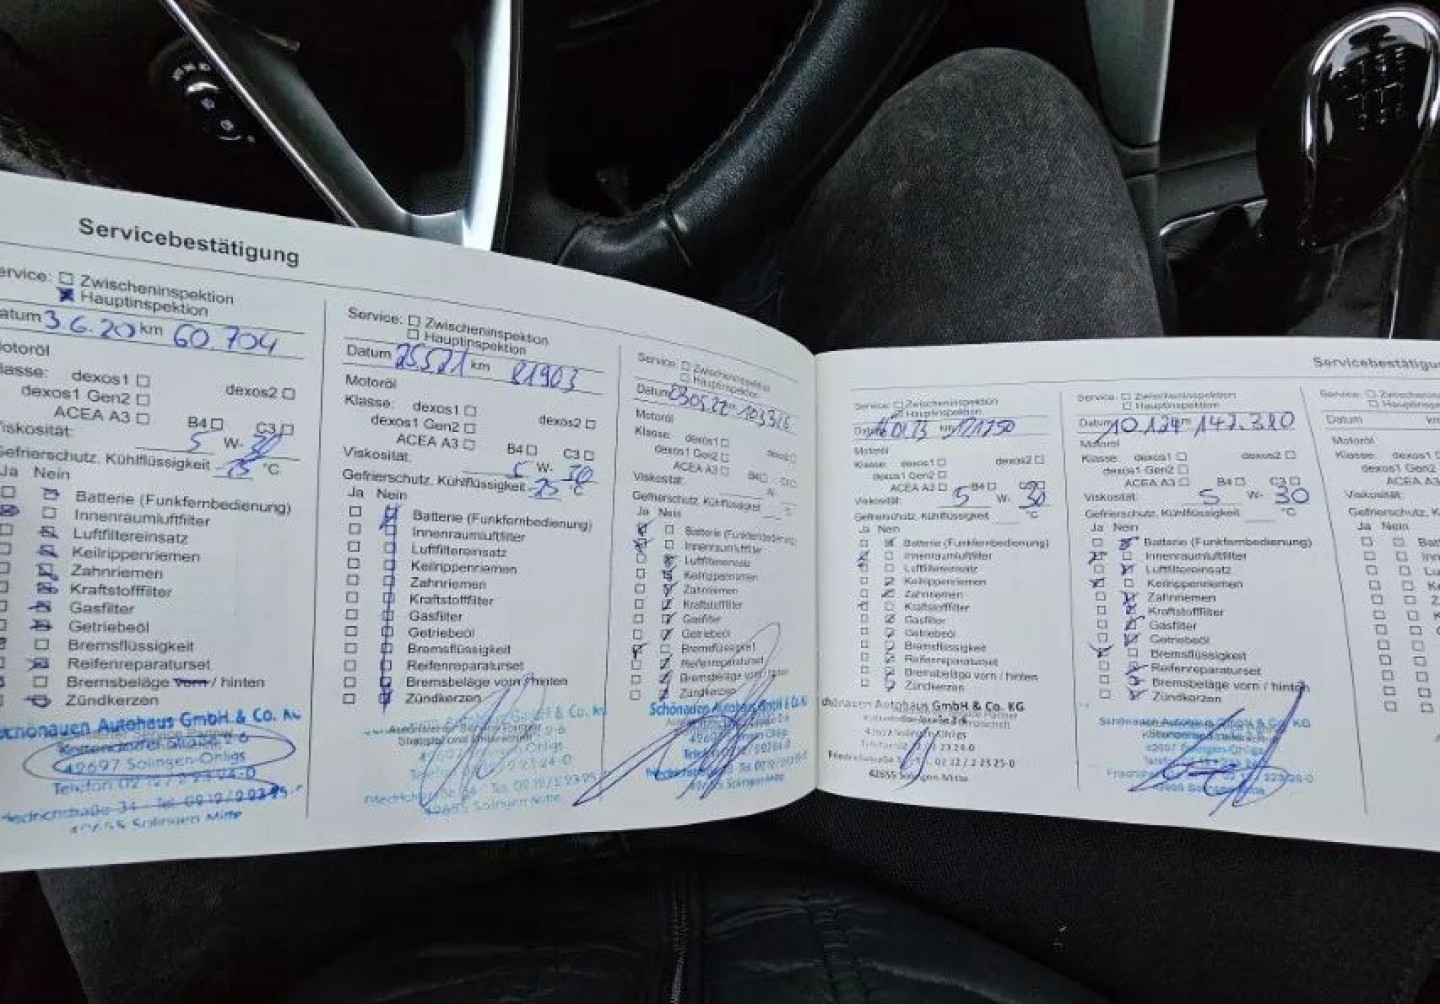 Servicebestätigung
ervice: Zwischeninspektion
Hauptinspektion
atum 3.6.20 km 60 704
otoröl
lasse: dexos1 dexos2
dexos1 Gen2
ACEA A3 B4 C3
iskosität: 5 W- 30
efrierschutz, Kühlflüssigkeit °C
Ja Nein
Batterie (Funkfernbedienung)
Innenraumluftfilter
Luftfiltereinsatz
Keilrippenriemen
Zahnriemen
Kraftstofffilter
Gasfilter
Getriebeöl
Bremsflüssigkeit
Reifenreparaturset
Bremsbeläge vorn / hinten
Zündkerzen
chönauen Autohaus GmbH & Co. KG
42697 Solingen-Ohligs
42655 Solingen Mitte
Service: Zwischeninspektion
Hauptinspektion
Datum 25.5.21 km 81903
Motoröl
Klasse: dexos1 dexos2
dexos1 Gen2
ACEA A3 B4 C3
Viskosität: 5 W- 30
Gefrierschutz, Kühlflüssigkeit -25 °C
Ja Nein
Batterie (Funkfernbedienung)
Innenraumluftfilter
Luftfiltereinsatz
Keilrippenriemen
Zahnriemen
Kraftstofffilter
Gasfilter
Getriebeöl
Bremsflüssigkeit
Reifenreparaturset
Bremsbeläge vorn / hinten
Zündkerzen
42655 Solingen Mitte
Service: Zwischeninspektion
Hauptinspektion
Datum
Motoröl
Klasse: dexos1
dexos1 Gen2
ACEA A3 B4 C3
Viskosität: W
Gefrierschutz, Kühlflüssigkeit °C
Ja Nein
Batterie (Funkfernbedienung
Innenraumluftfilter
Luftfiltereinsatz
Keilrippenriemen
Zahnriemen
Kraftstofffilter
Gasfilter
Getriebeöl
Bremsflüssigkeit
Reifenreparaturset
Bremsbeläge vorn / hinten
Zündkerzen
Schönauen Autohaus GmbH & Co. KG
Service: Zwischeninspektion
Hauptinspektion
Datum km 121750
Motoröl
Klasse: dexos1 dexos2
dexos1 Gen2
ACEA A3 B4 C3
Viskosität: 5 W- 30
Gefrierschutz, Kühlflüssigkeit °C
Ja Nein
Batterie (Funkfernbedienung)
Innenraumluftfilter
Luftfiltereinsatz
Keilrippenriemen
Zahnriemen
Kraftstofffilter
Gasfilter
Getriebeöl
Bremsflüssigkeit
Reifenreparaturset
Bremsbeläge vorn / hinten
Zündkerzen
chönauen Autohaus GmbH & Co. KG
42655 Solingen-Mitte
Servicebestätigu
Service: Zwischeninspektion
Hauptinspektion
Datum 10.1.24 147.380
Motoröl
Klasse: dexos1 dexos2
dexos1 Gen2
ACEA A3 B4 C3
Viskosität: 5 W- 30
Gefrierschutz, Kühlflüssigkeit °C
Ja Nein
Batterie (Funkfernbedienung)
Innenraumluftfilter
Luftfiltereinsatz
Keilrippenriemen
Zahnriemen
Kraftstofffilter
Gasfilter
Getriebeöl
Bremsflüssigkeit
Reifenreparaturset
Bremsbeläge vorn / hinten
Zündkerzen
Schönauen Autohaus GmbH & Co. KG
42697 Solingen-Ohligs
Service: Zwisch
Hauptinsp
Datum
Motoröl
Klasse: dexos1
dexos1 Gen2
ACEA A3
Viskosität:
Gefrierschutz, Kühlflüs
Ja Nein